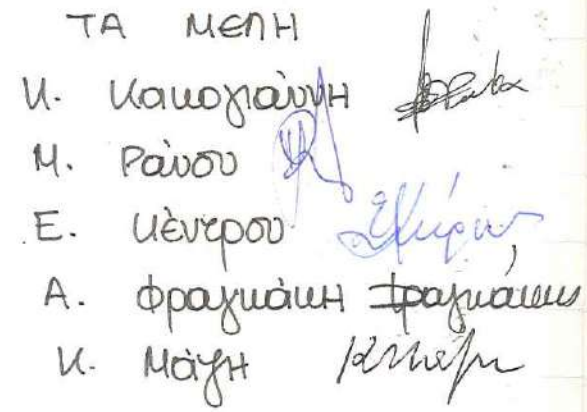 ΤΑ ΜΕΛΗ
Κ. Κακογιάννη
Μ. Ράνου
Ε. Κέντρου
Α. Φραγκάκη Φραγκάκης
Κ. Μάγη